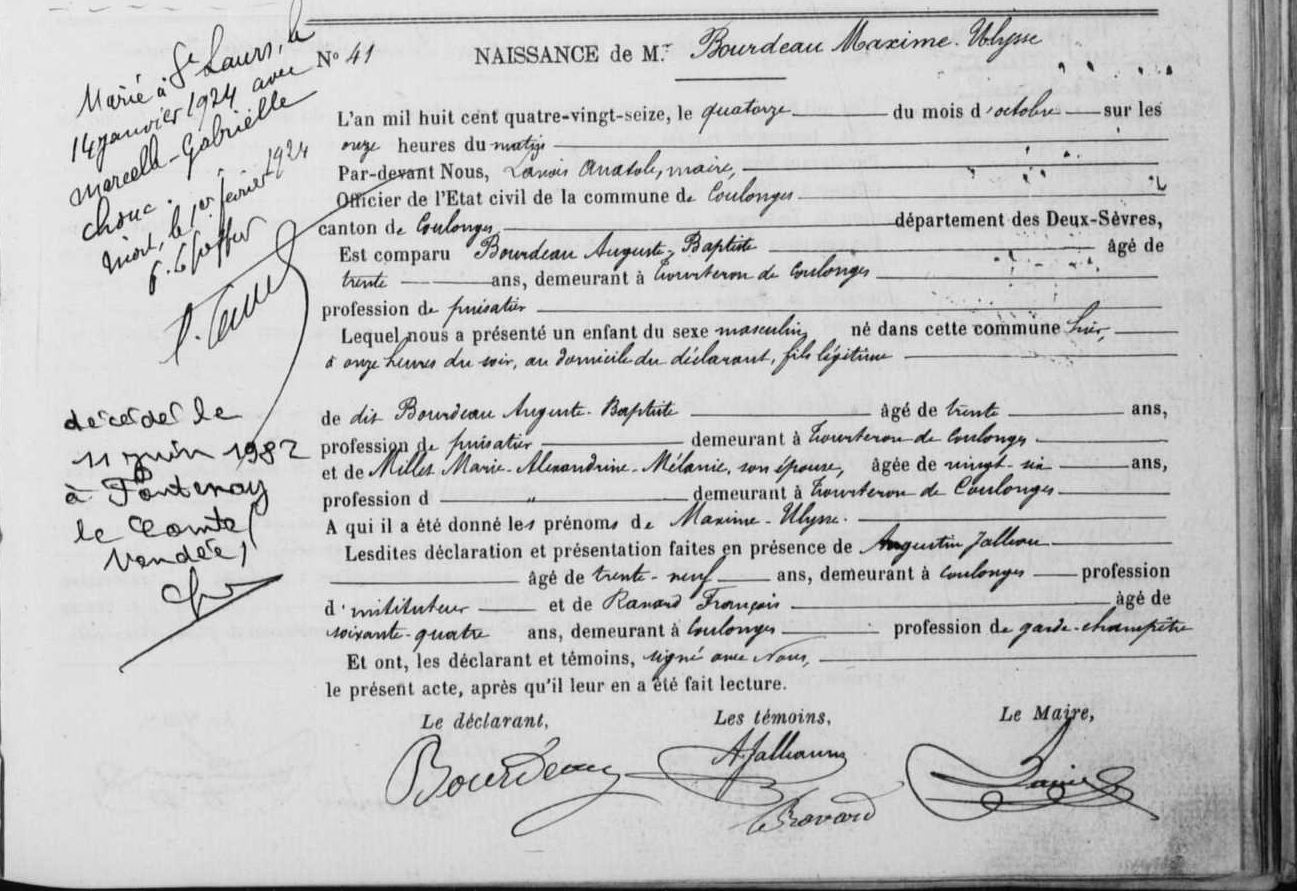 Marié à St Laurs, le
14 janvier 1924 avec
Marcelle-Gabrielle
Niort, le 1er février 1924
décédé le
11 juin 1982
à Fontenay
le Comte
Vendée)
No 41
NAISSANCE de M.r Bourdeau Maxime-Ulysse
L'an mil huit cent quatre-vingt-seize, le quatorze du mois d'octobre sur les
onze heures du matin
Par-devant Nous, Anatole, maire,
Officier de l'Etat civil de la commune de Coulonges
canton de Coulonges, département des Deux-Sèvres,
Est comparu Bourdeau Auguste-Baptiste âgé de
trente ans, demeurant à Tourteron de Coulonges
profession de puisatier
Lequel nous a présenté un enfant du sexe masculin, né dans cette commune hier,
à onze heures du soir, au domicile du déclarant, fils légitime
de dit Bourdeau Auguste-Baptiste âgé de trente ans,
profession de puisatier demeurant à Tourteron de Coulonges
et de Millet Marie-Alexandrine-Mélanie, son épouse, âgée de vingt-six ans,
profession d " demeurant à Tourteron de Coulonges
A qui il a été donné les prénoms de Maxime-Ulysse.
Lesdites déclaration et présentation faites en présence de Augustin
âgé de trente-neuf ans, demeurant à Coulonges profession
d'instituteur et de Ravard François âgé de
soixante-quatre ans, demeurant à Coulonges profession de garde-champêtre
Et ont, les déclarant et témoins, signé avec Nous,
le présent acte, après qu'il leur en a été fait lecture.
Le déclarant, Les témoins, Le Maire,
Bourdeau
Ravard